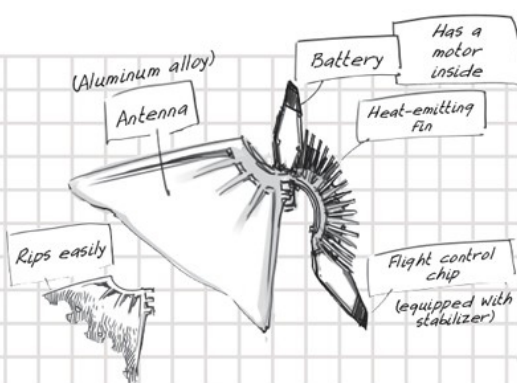 (Aluminum alloy)
Antenna
Battery
Has a
motor
inside
Heat-emitting
fin
Rips easily
Flight control
chip
(equipped with
stabilizer)